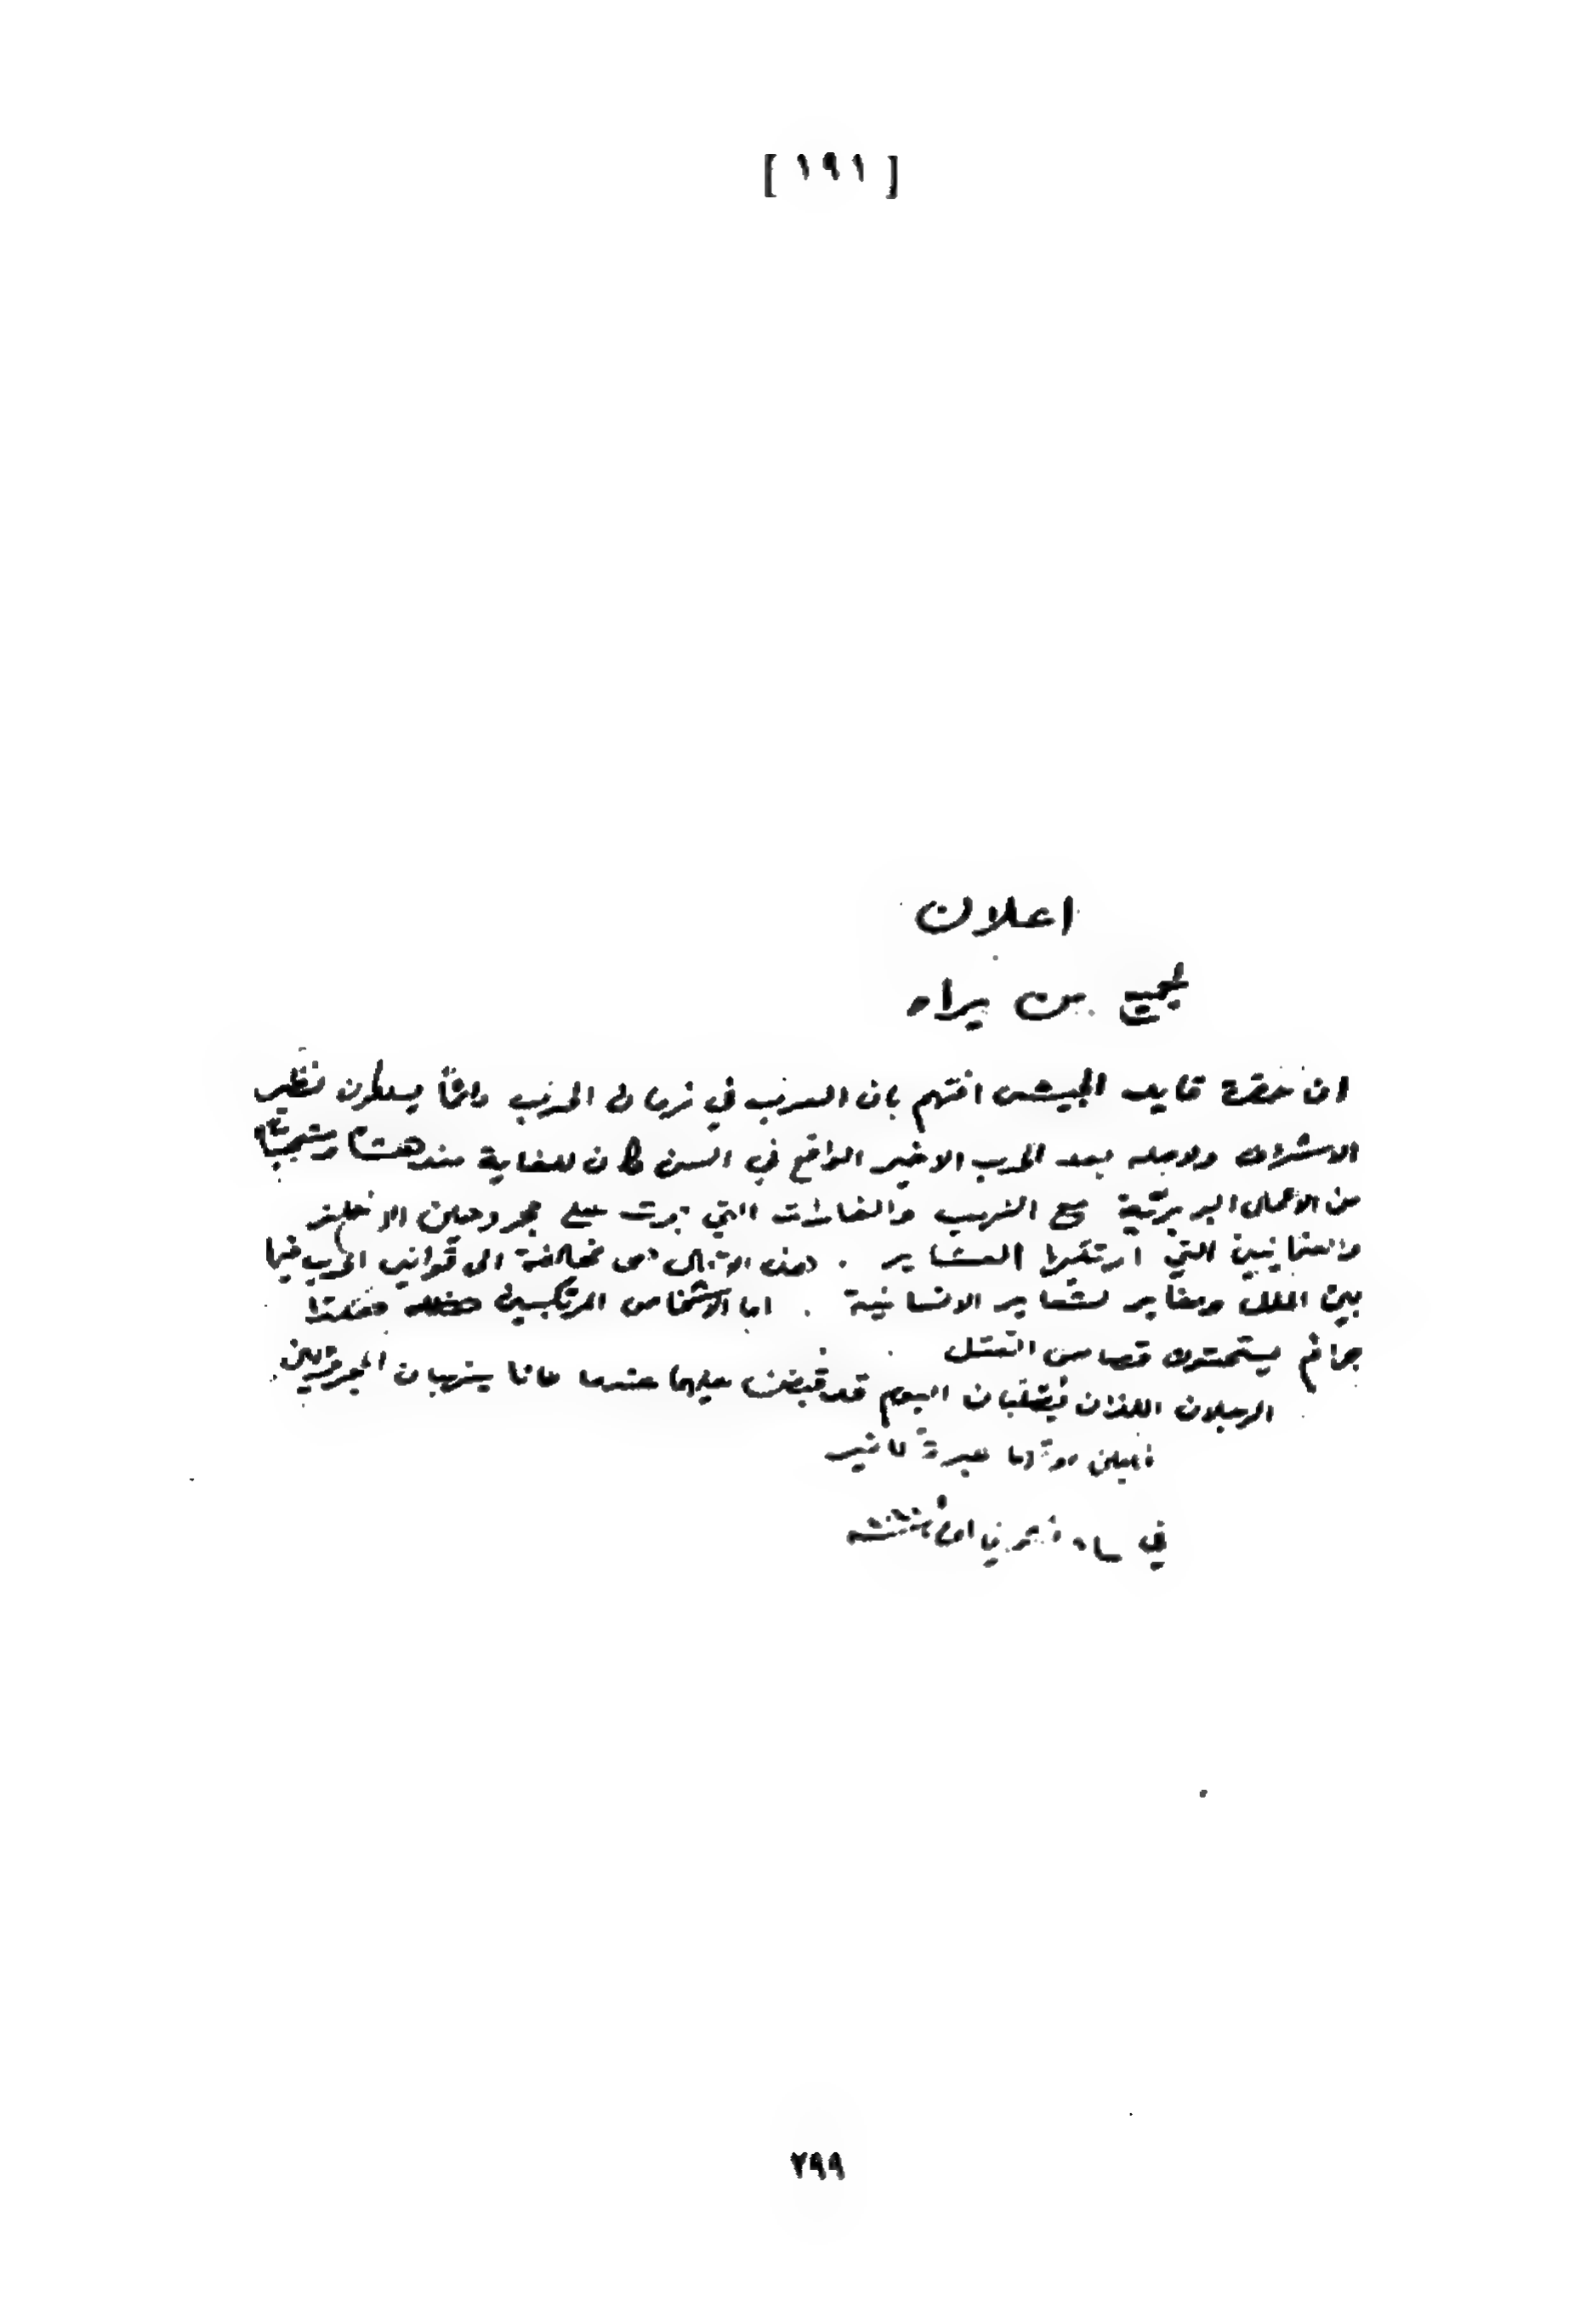 [ ١٩١ ]
اعلان
لجميع من يراه
ان حضرة قايد الجيش افتهم بان العرب في زمان الحرب دائماً يسلكون نظير
الاشراف ولاجله بعد الحرب الاخير الواقع في السن كان للغاية مندهشا
من الاعمال البربريّة مع النهب والغارات التي جرت على مجروحين الانكليز
والعثمانيين التي ارتكبها العشاير . مخالفة الى قوانين الحرب فيما
بين الملل ومغاير لشعاير الانسانية . اما الاشخاص المرتكبين هكذا
جرائم يستحقون قصاص القتل .
الرجلان اللذان يُصلبان اليوم قد قبض عليهما عندما كانا ينهبان المجروحين
عبرة للغير
في
٢٩٩